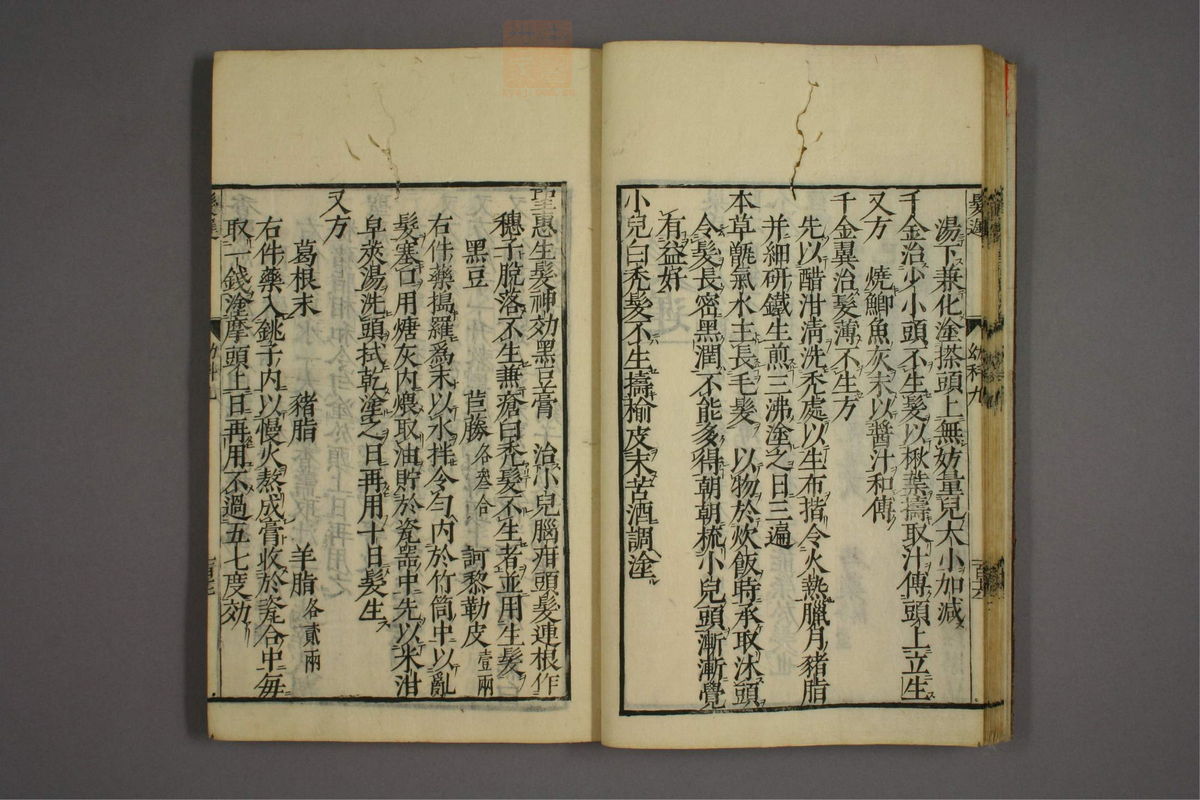 湯下兼化塗搽頭上無妨量兒大小加減
千金治少小頭不生髮以楸葉擣取汁傅頭上立生
又方　燒鯽魚灰末以醬汁和傅
千金翼治髮薄不生方
先以醋泔清洗禿處以生布揩令火熱臘月豬脂
并細研鐵生煎三沸塗之日三遍
本草甑氣水主長毛髮　以物於炊飯時承取沐頭
令髮長密黑潤不能多得朝朝梳小兒頭漸漸覺
有益好
小兒白禿髮不生擣榆皮末苦酒調塗
幼科九
聖惠生髮神効黑豆膏　治小兒腦疳頭髮連根作
穗子脫落不生兼瘡白禿髮不生者並用生髮
黑豆　苣藤各叁合　訶黎勒皮壹兩
右件藥搗羅爲末以水拌令勻內於竹筒中以亂
髮塞口用煻灰內煨取油貯於瓷器中先以米泔
皁莢湯洗頭拭乾塗之日再用十日髮生
又方
葛根末　豬脂　羊脂各貳兩
右件藥入銚子內以慢火熬成膏收於瓷合中每
取一錢塗摩頭上日再用不過五七度効